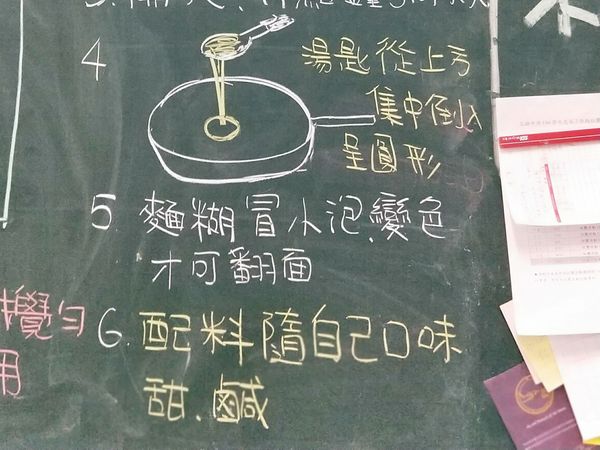 4
湯匙從上方
集中倒入
呈圓形
5 麵糊冒小泡.變色
才可翻面
攪勻
用
6. 配料隨自己口味
甜.鹹